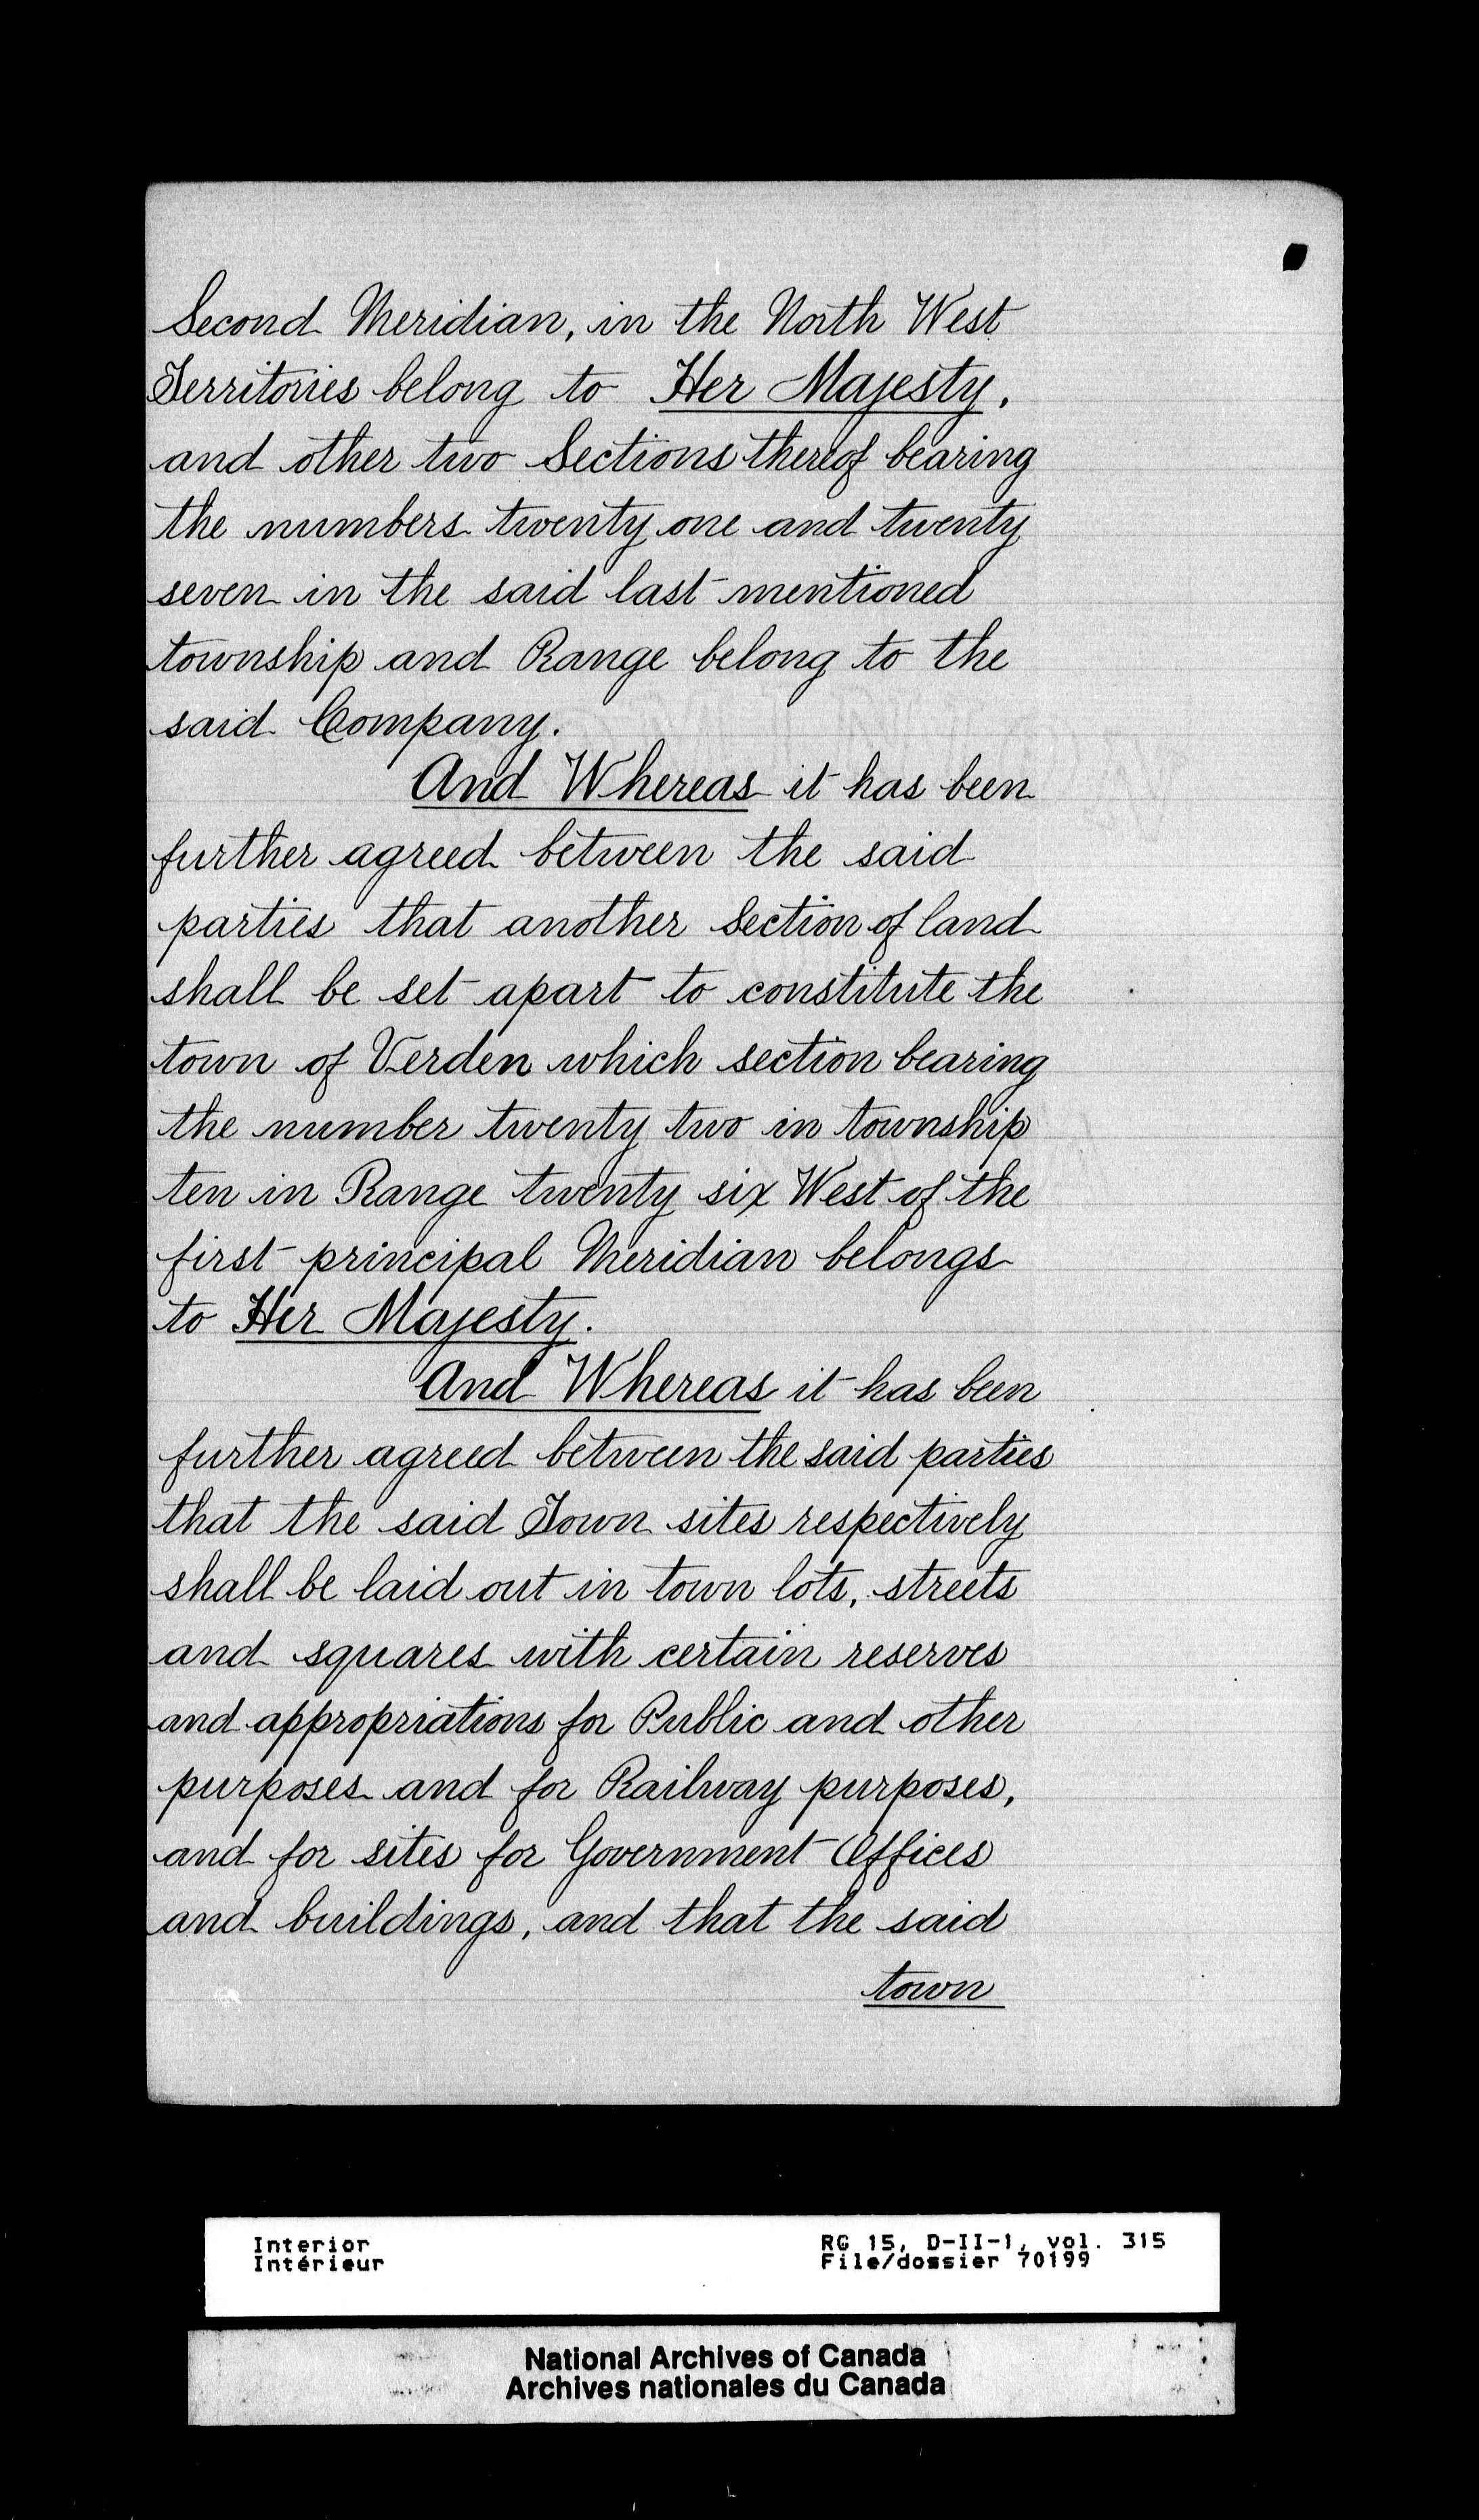 Second Meridian, in the North West
Territories belong to Her Majesty,
and other two Sections thereof bearing
the numbers twenty one and twenty
seven in the said last mentioned
township and Range belong to the
said Company.
And Whereas it has been
further agreed between the said
parties that another Section of land
shall be set apart to constitute the
town of Verden which section bearing
the number twenty two in township
ten in Range twenty six West of the
first principal Meridian belongs
to Her Majesty.
And Whereas it has been
further agreed between the said parties
that the said Town sites respectively
shall be laid out in town lots, streets
and squares with certain reserves
and appropriations for Public and other
purposes and for Railway purposes,
and for sites for Government Offices
and buildings, and that the said
town
Interior RG 15, D-II-1, vol. 315
Intérieur File/dossier 70199
National Archives of Canada
Archives nationales du Canada